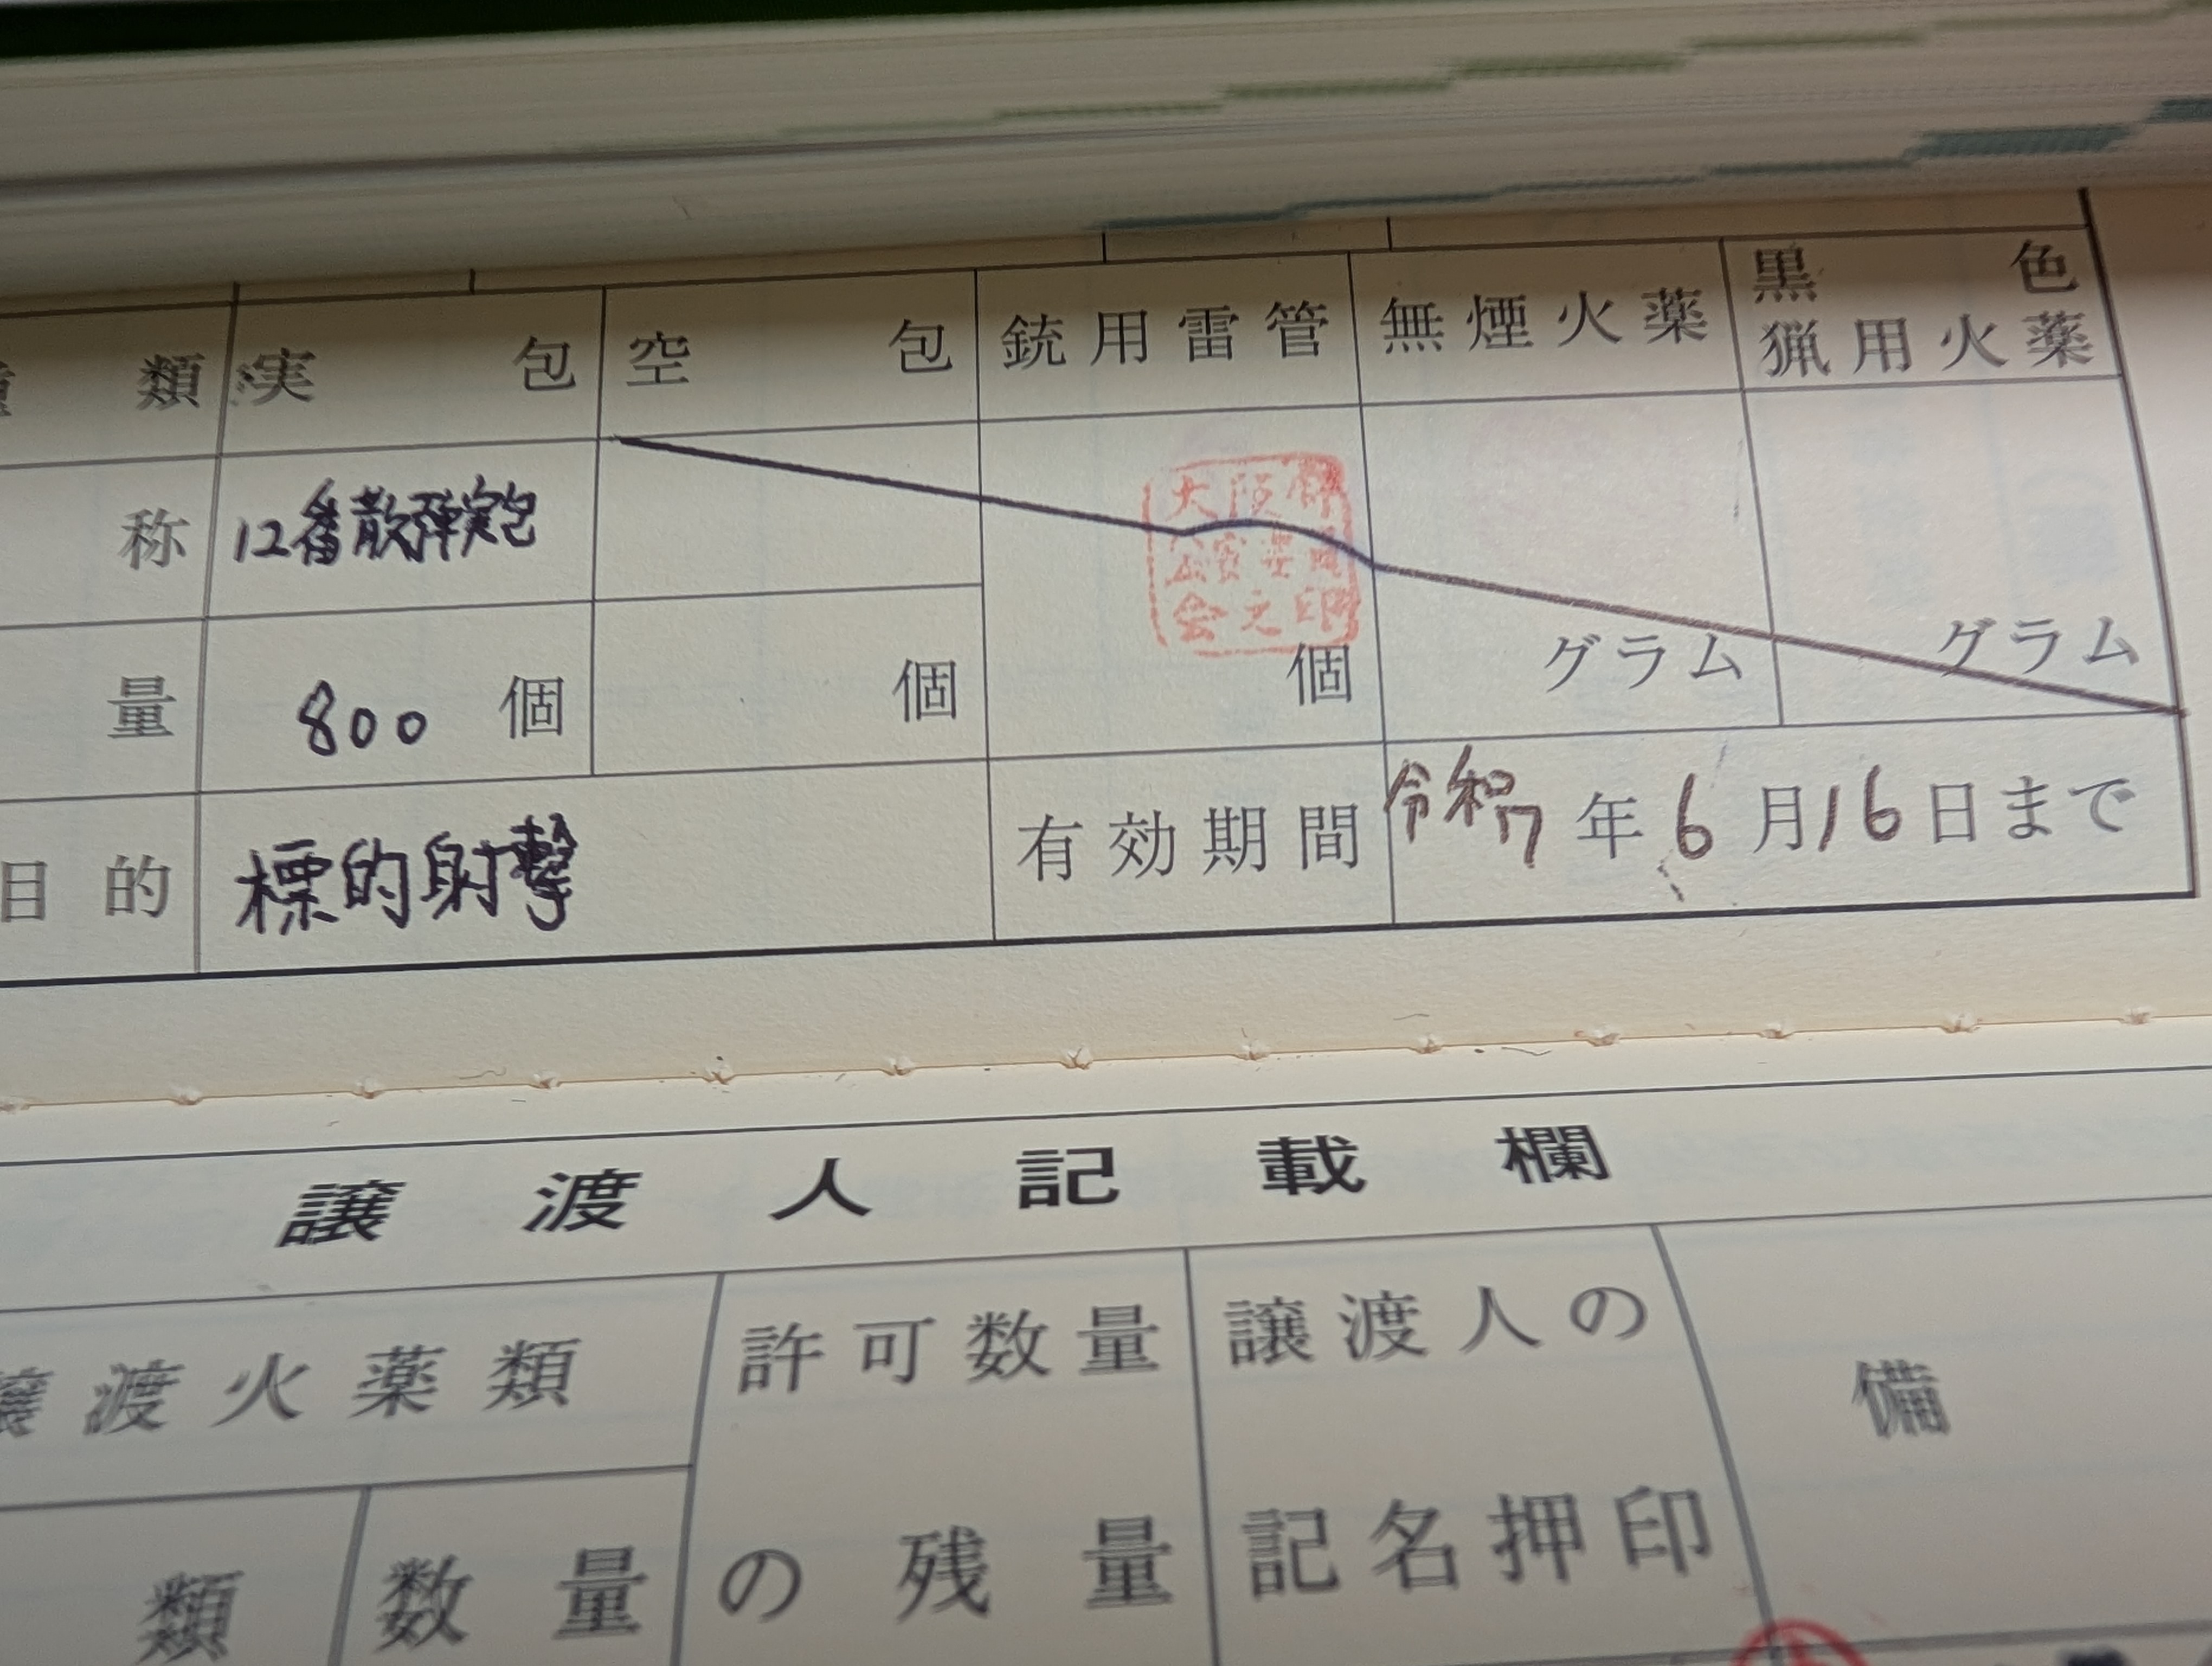 類 実包 空包 銃用雷管 無煙火薬 黒色猟用火薬
称 12番散弾実包
量 800個 個 個 グラム グラム
大阪府
公安委員
会之印
目的 標的射撃 有効期間 令和7年6月16日まで
譲渡人記載欄
譲渡火薬類 許可数量 譲渡人の 備
類 数量 の残量 記名押印